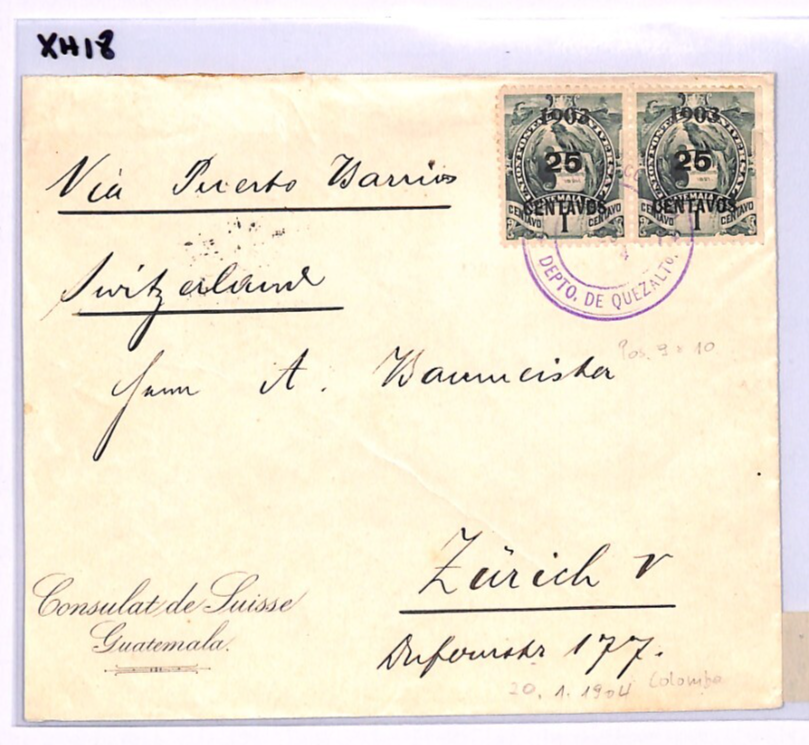 XH18
1903 1903
25 25
CENTAVOS CENTAVOS
CENTAVO 1 CENTAVO CENTAVO 1 CENTAVO
DEPTO. DE QUEZALTO.
Via Puerto Barrios
Switzerland
Herrn A. Baumeister
Pos. 9 + 10
Zürich V
Dufourstr 177.
Consulat de Suisse
Guatemala.
20. 1. 1904 Colomba